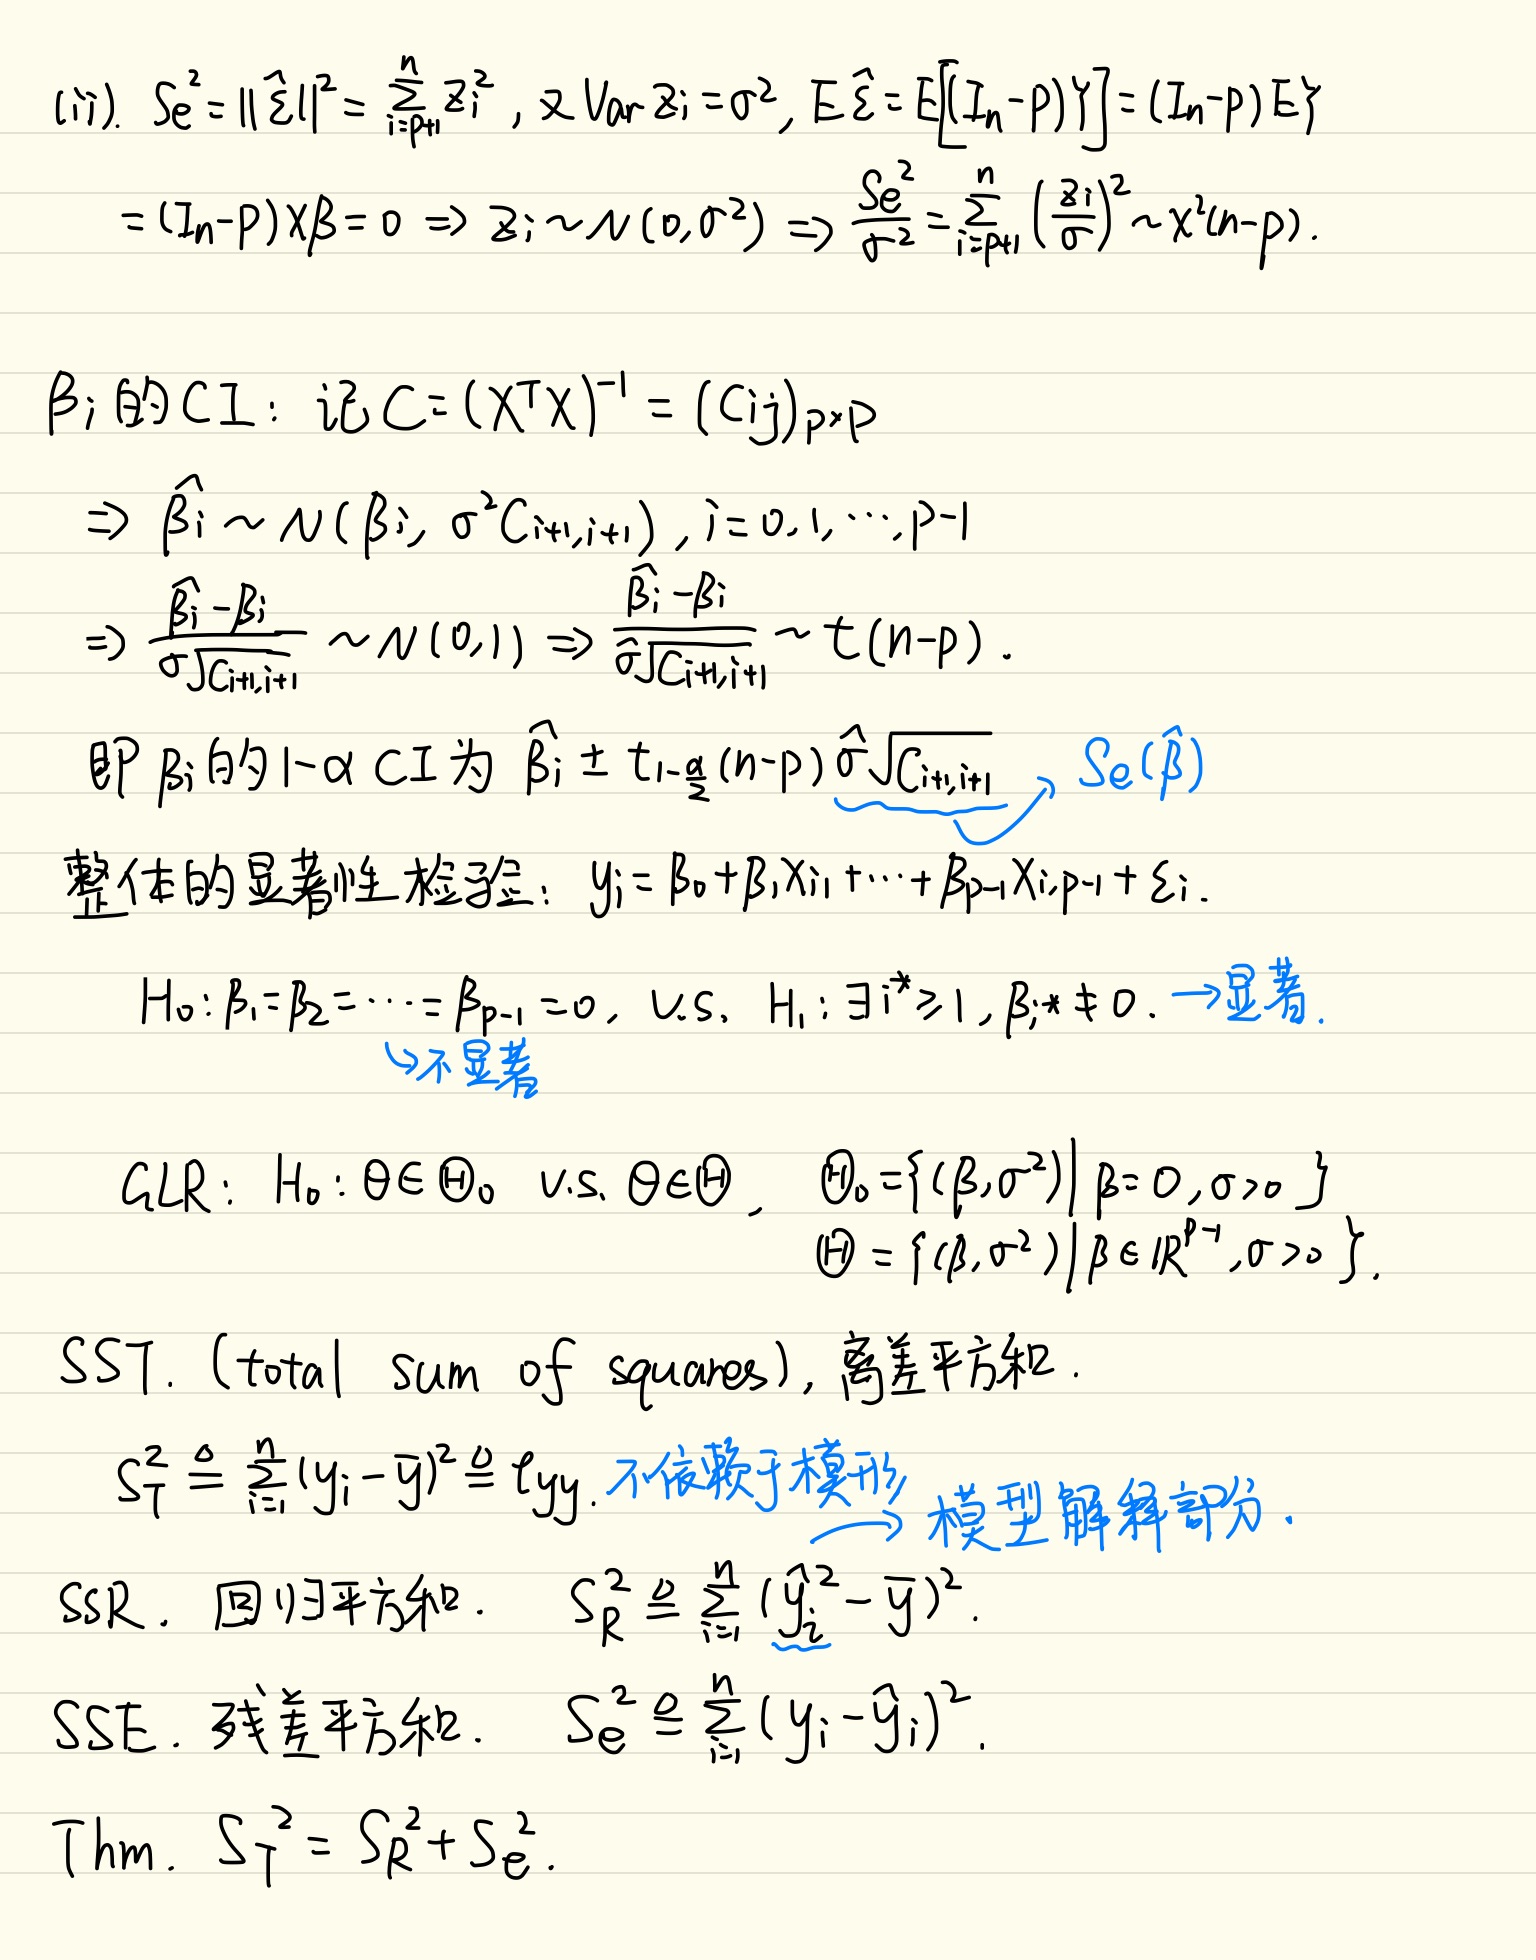 (ii). Se² = ‖ε̂‖² = Σ_{i=p+1}^{n} z_i², 又 Var z_i = σ², E ε̂ = E[(I_n-P)Y] = (I_n-P) EY
= (I_n-P)Xβ = 0 ⇒ z_i ~ N(0,σ²) ⇒ Se²/σ² = Σ_{i=p+1}^{n} (z_i/σ)² ~ χ²(n-p).
β_i 的CI: 记 C = (XᵀX)⁻¹ = (C_{ij})_{p×p}
⇒ β̂_i ~ N(β_i, σ²C_{i+1,i+1}), i=0,1,⋯,p-1
⇒ (β̂_i-β_i)/(σ√C_{i+1,i+1}) ~ N(0,1) ⇒ (β̂_i-β_i)/(σ̂√C_{i+1,i+1}) ~ t(n-p).
即 β_i 的 1-α CI 为 β̂_i ± t_{1-α/2}(n-p) σ̂√C_{i+1,i+1} → Se(β̂)
整体的显著性检验: y_i = β_0+β_1X_{i1}+⋯+β_{p-1}X_{i,p-1}+ε_i.
H_0: β_1=β_2=⋯=β_{p-1}=0, v.s. H_1: ∃i*≥1, β_{i*}≠0. →显著.
↳不显著
GLR: H_0: θ∈Θ_0 v.s. θ∈Θ, Θ_0={(β,σ²)|β=0,σ>0}
Θ={(β,σ²)|β∈ℝ^{p-1},σ>0}.
SST. (total sum of squares), 离差平方和.
S_T² ≜ Σ_{i=1}^{n}(y_i-ȳ)² ≜ ℓ_{yy}. 不依赖于模形
→ 模型解释部分.
SSR. 回归平方和. S_R² ≜ Σ_{i=1}^{n}(ŷ_i²-ȳ)².
SSE. 残差平方和. S_e² ≜ Σ_{i=1}^{n}(y_i-ŷ_i)².
Thm. S_T² = S_R²+S_e².